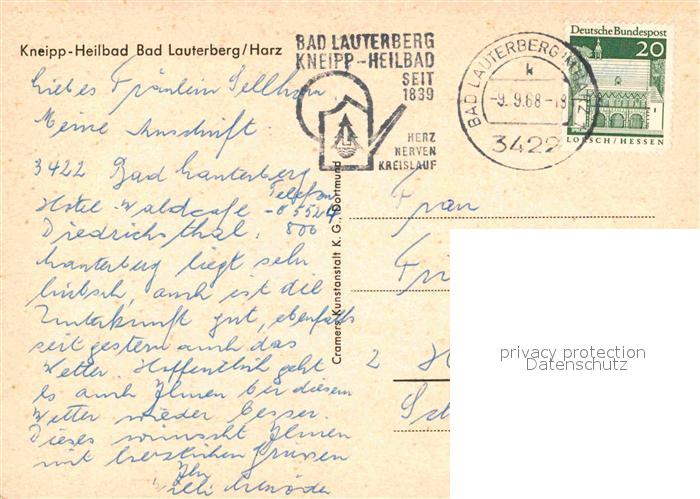 Kneipp-Heilbad Bad Lauterberg/Harz
BAD LAUTERBERG
KNEIPP-HEILBAD
SEIT
1839
HERZ
NERVEN
KREISLAUF
BAD LAUTERBERG IM HARZ
k
-9.9.68-18
3422
Deutsche Bundespost
20
LORSCH/HESSEN
Liebes Fräulein
Meine Anschrift.
3422 Bad Lauterberg
Telefon
Hotel-Waldcafe -05524
Diedrichsthal. 800
Lauterberg liegt sehr
hübsch, auch ist die
Unterkunft gut, ebenfalls
seit gestern auch das
Wetter. Hoffentlich geht
es auch Ihnen bei diesem
Wetter wieder besser.
Dieses wünscht Ihnen
mit herzlichen Grüssen
Ihr
Cramers Kunstanstalt K. G., Dortmund
Frau
2 H
privacy protection
Datenschutz